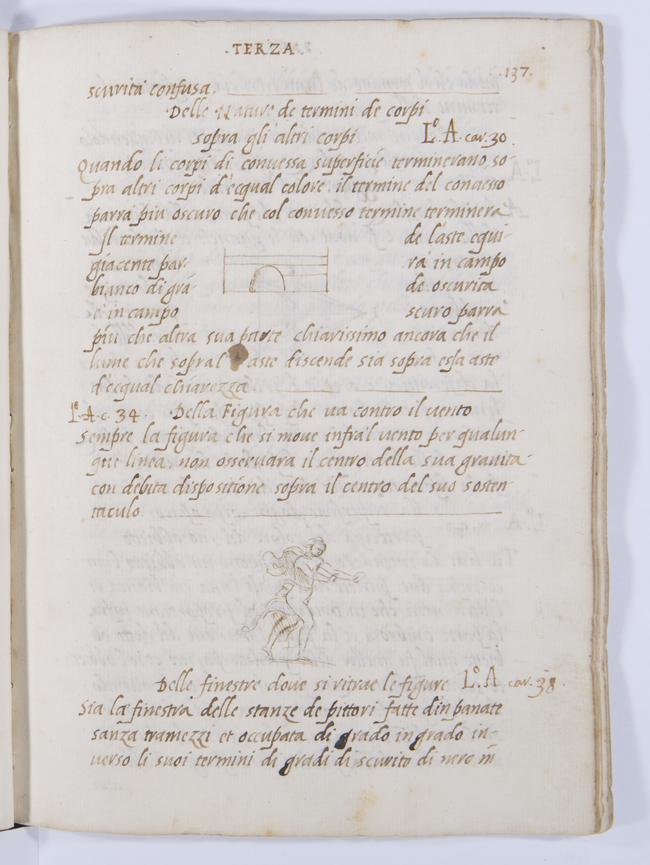 TERZA
137.
scurità confusa.
Delle Nature de termini de corpi
sopra gli altri corpi L.º A. car. 30
Quando li corpi di convessa superficie terminerano so-
pra altri corpi d'ecqual colore. il termine del convesso
parrà piu oscuro che col convesso termine terminera
Il termine de l'aste equi-
giacente par- rà in campo
bianco di grã de oscurità
e in campo scuro parrà
piu che altra sua parte chiarissimo ancora che il
lume che sopra l' aste discende sia sopra essa aste
d'ecqual chiarezza
L.º A. c. 34. Della Figura che va contro il vento
Sempre la figura che si move infra'l vento per qualun-
que linea, non osservara il centro della sua gravità
con debita dispositione sopra il centro del suo susten-
taculo.
Delle finestre dove si ritrae le figure L.º A car. 38.
Sia la finestra delle stanze de pittori fatte d'inpanate
sanza tramezzi et occupata di grado in grado in-
verso li suoi termini di gradi di scurito di nero in